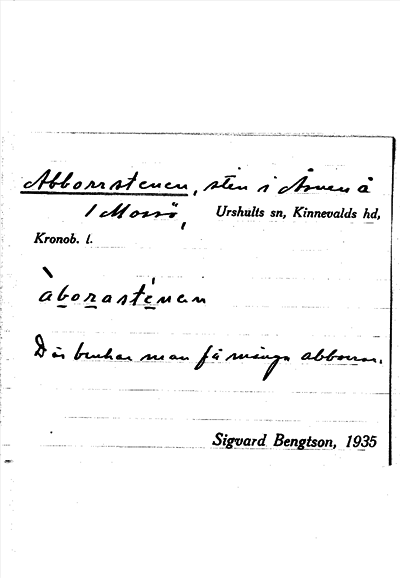 Abborrstenen, sten i Åsnen å
1 Mossö, Urshults sn, Kinnevalds hd,
Kronob. l.
àborasténan
Där brukar man få många abborrar.
Sigvard Bengtson, 1935